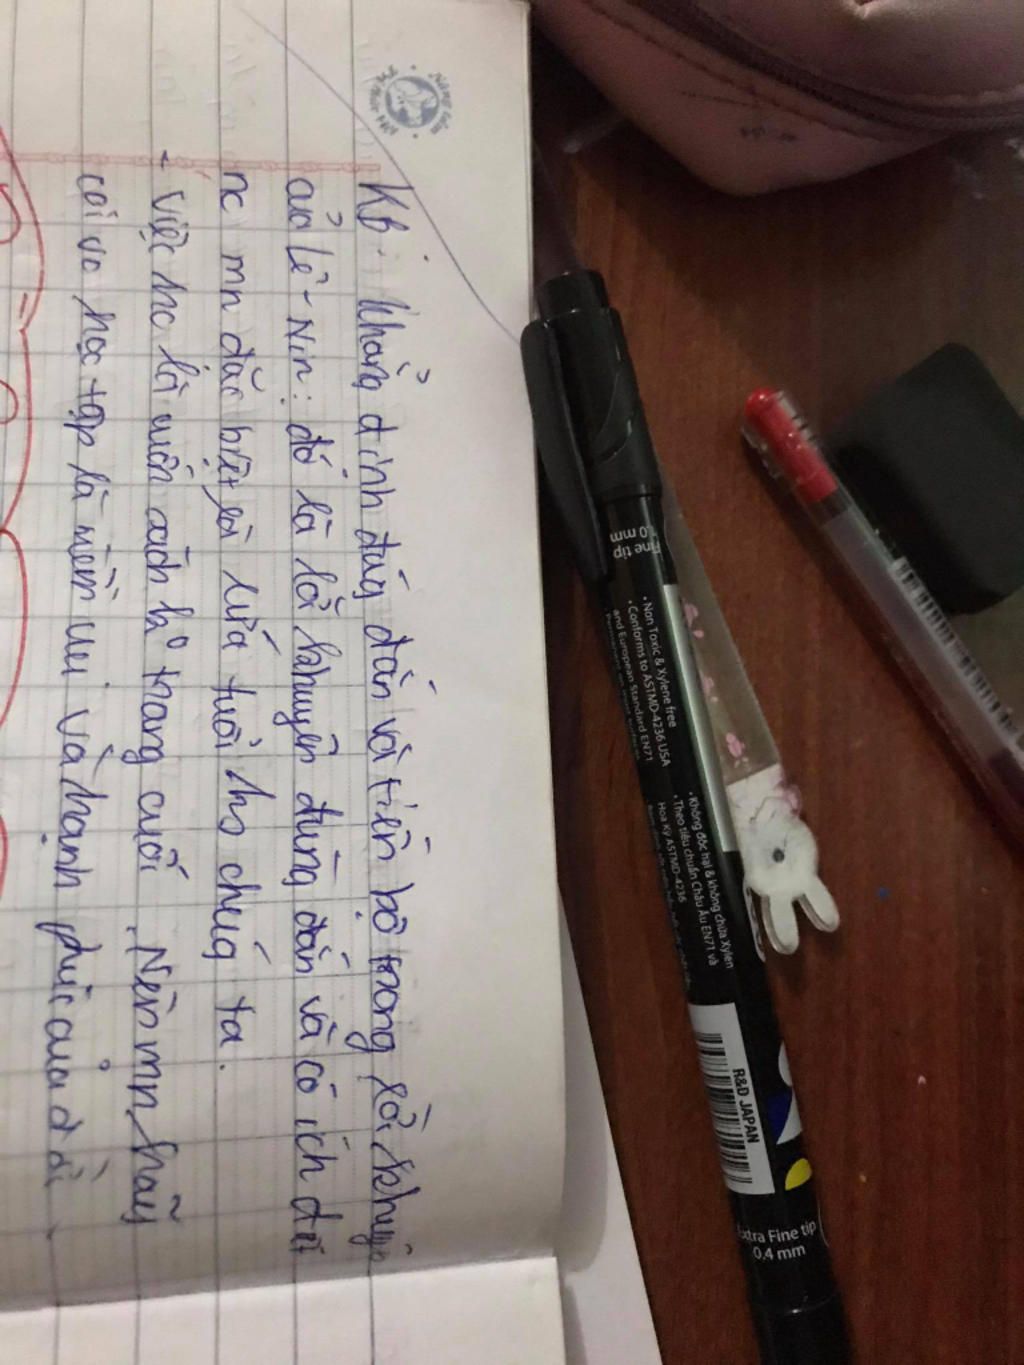 KB: Khẳng định đúng đắn và tiến bộ trong lời khuyên
của Lê-Nin: đó là lời khuyên đúng đắn và có ích đối
nc mn đặc biệt là lứa tuổi hs chúng ta.
- Việc hc là cuốn sách ko trang cuối. Nên mn hãy
coi vc học tập là niềm vui và hạnh phúc của đời.
Fine tip
1.0 mm
• Non Toxic & Xylene free
• Conforms to ASTMD-4236 USA
and European Standard EN71
• Không độc hại & không chứa Xylen
• Theo tiêu chuẩn Châu Âu EN71 và
Hoa Kỳ ASTMD-4236
R&D JAPAN
Extra Fine tip
0,4 mm